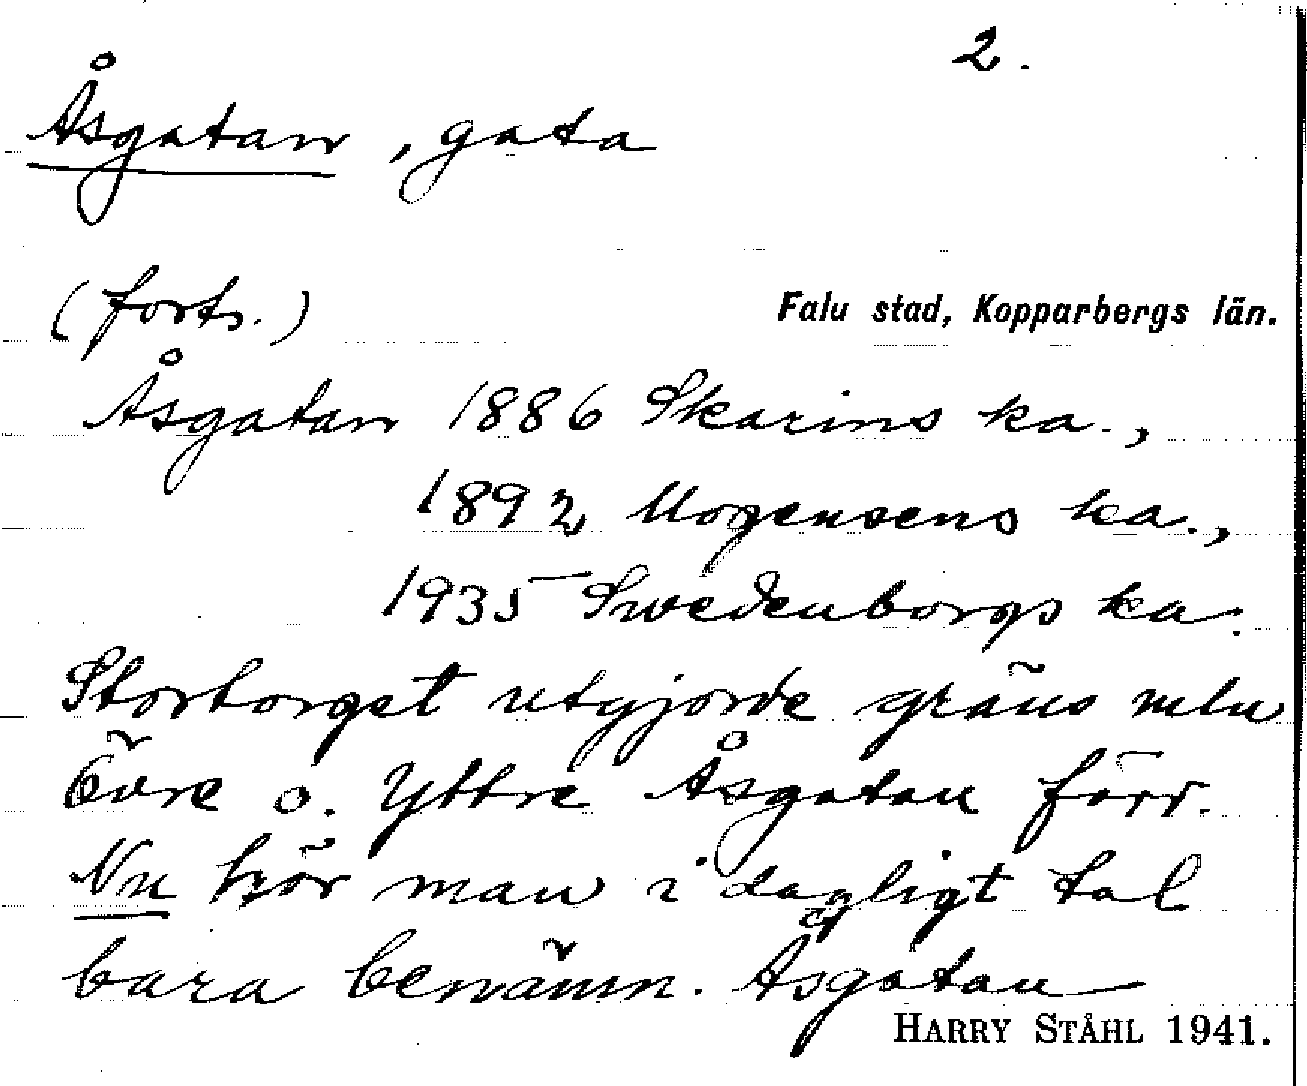 2.
Åsgatan, gata
(forts.)
Falu stad, Kopparbergs län.
Åsgatan 1886 Skarins ka.,
1892 Mogensens ka.,
1935 Swedenborgs ka.
Stortorget utgjorde gräns mln
Övre o. Yttre Åsgatan förr.
Nu hör man i dagligt tal
bara benämn. Åsgatan
HARRY STÅHL 1941.